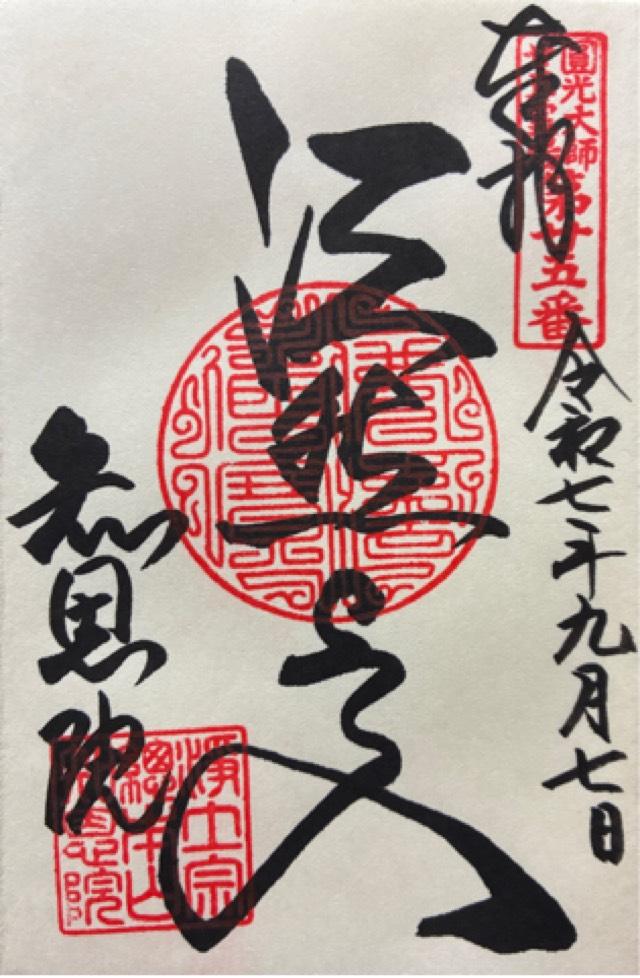 奉拝
圓光大師
第廿五番
令和七年九月七日
法然上人
知恩院
浄土宗
總本山
知恩院印